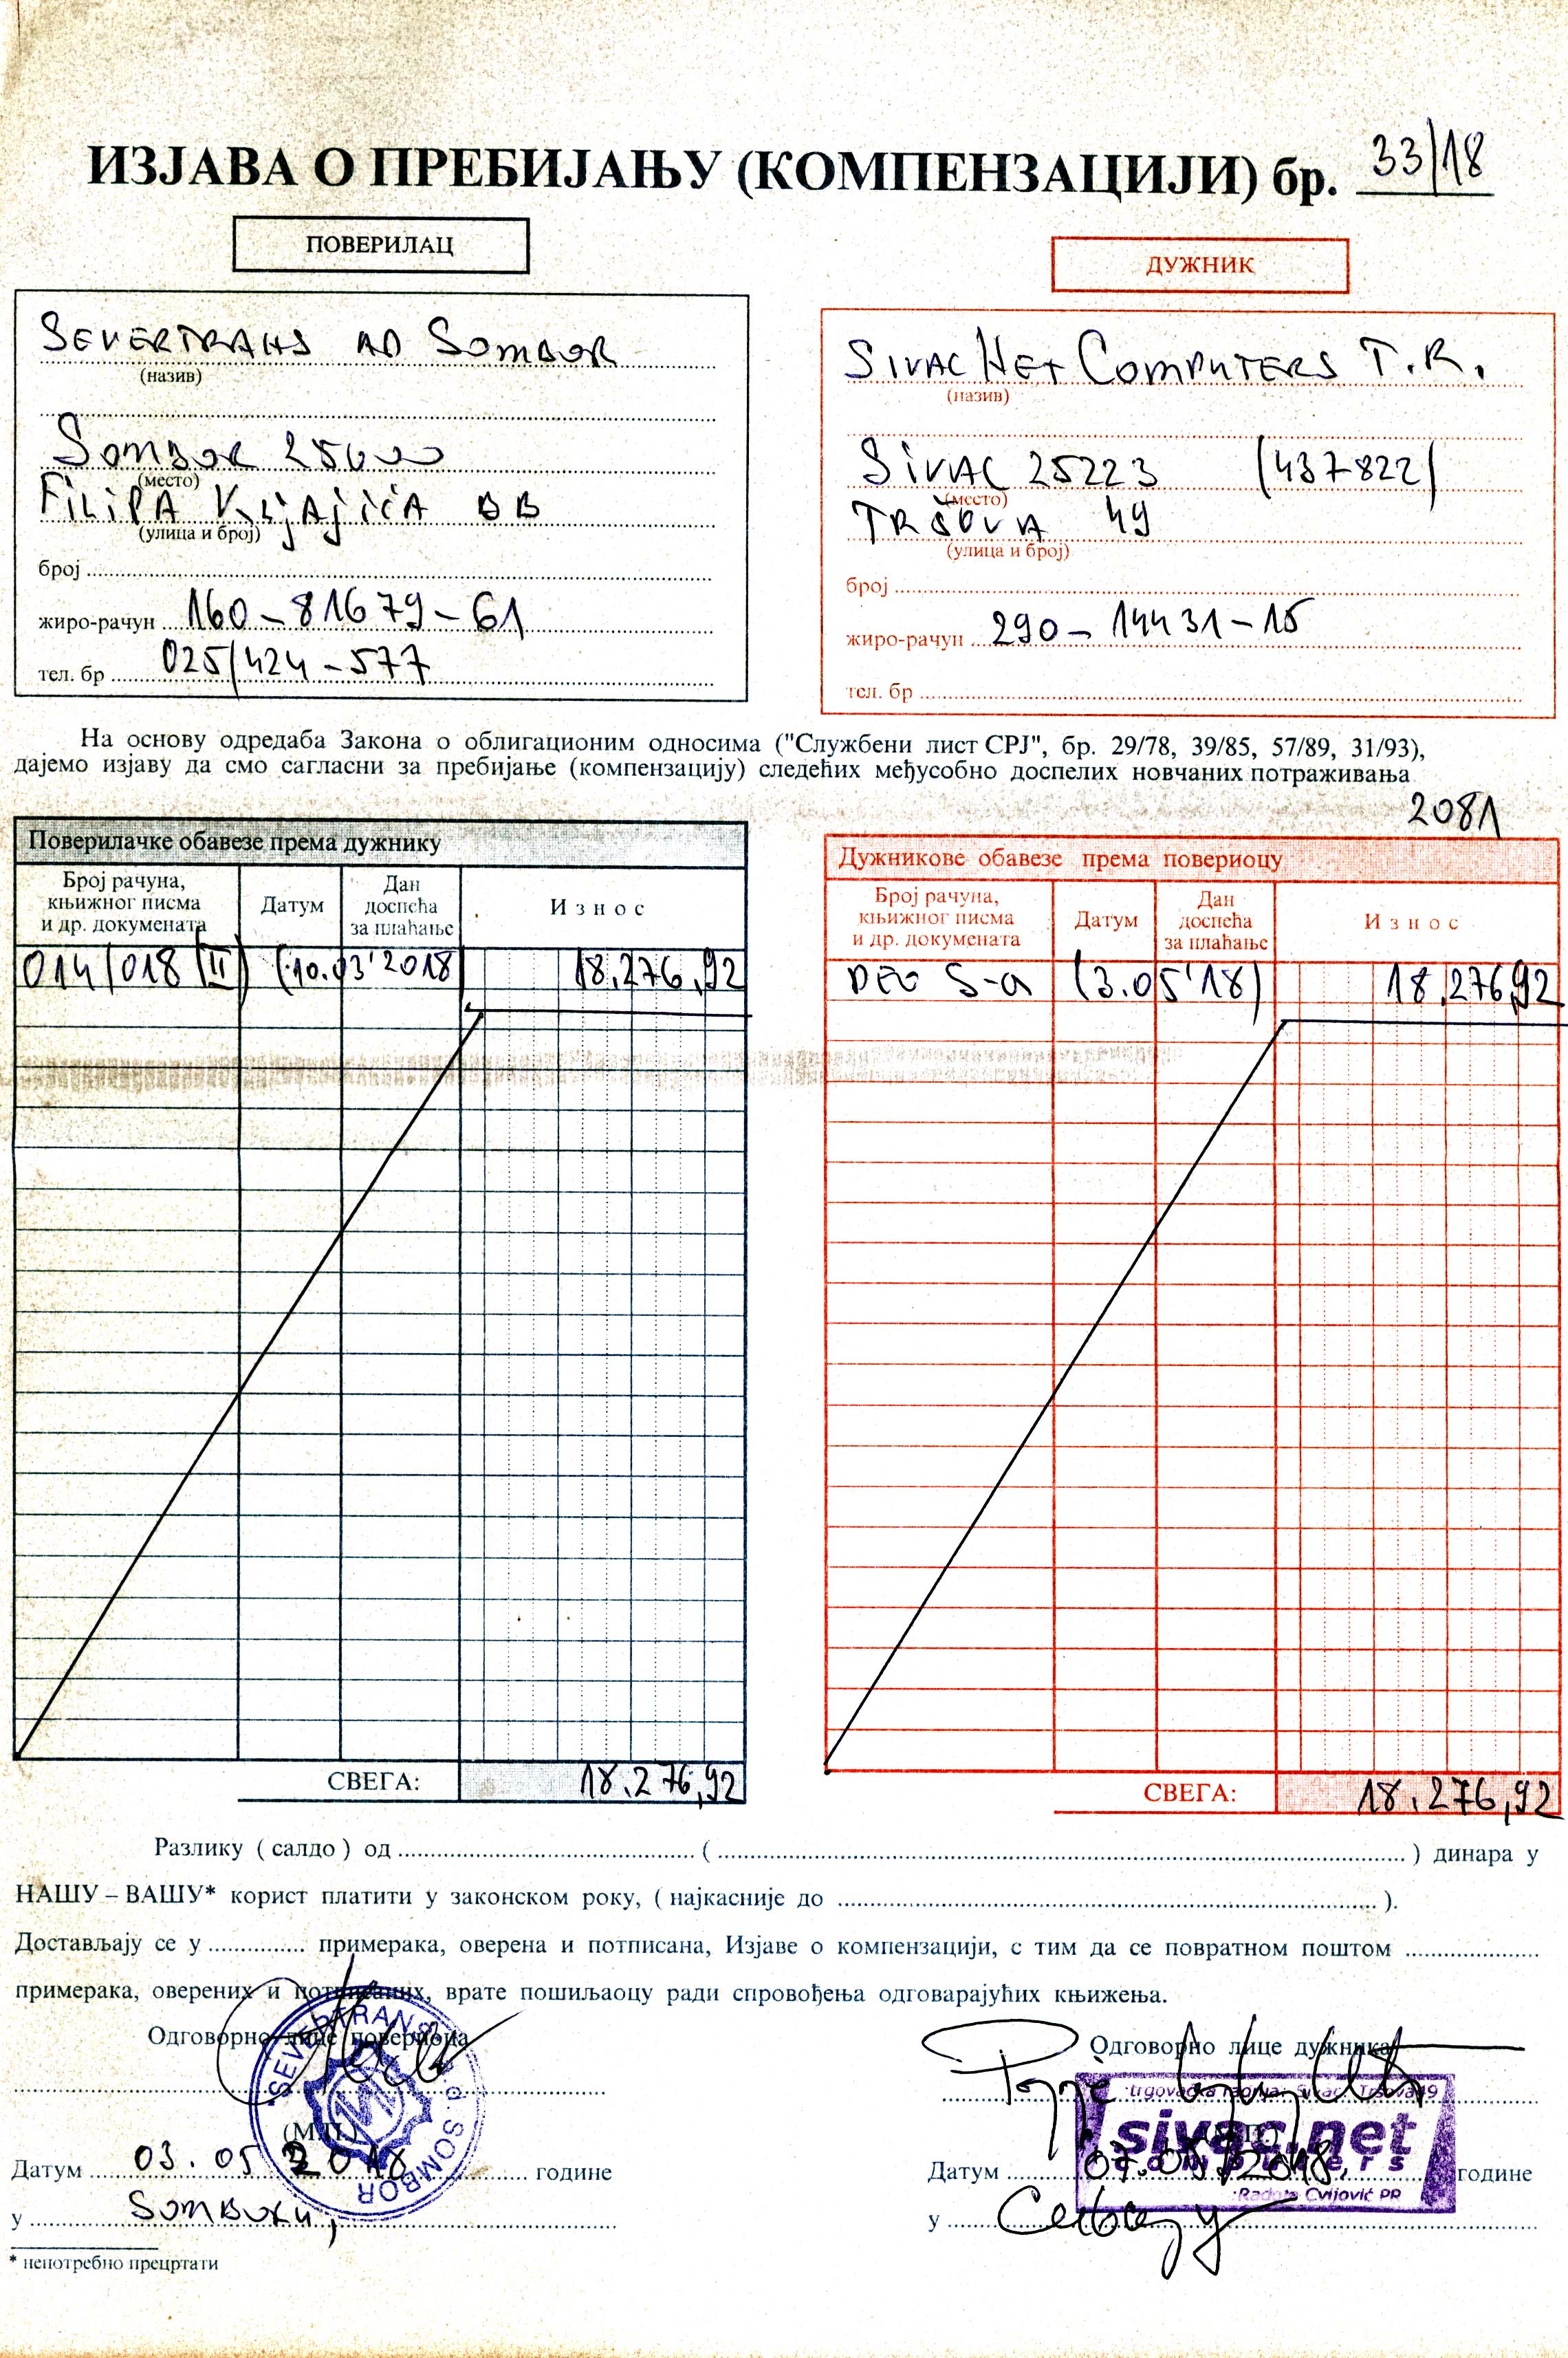 ИЗЈАВА О ПРЕБИЈАЊУ (КОМПЕНЗАЦИЈИ) бр. 33/18
ПОВЕРИЛАЦ
SEVERTRANS AD SOMBOR
(назив)
SOMBOR 25000
(место)
FILIPA KLJAJIĆA BB
(улица и број)
број
жиро-рачун 160-81679-61
тел. бр 025/424-577
ДУЖНИК
SIVAC NET COMPUTERS T.R.
(назив)
SIVAC 25223 (437822)
(место)
TRŠOVA 49
(улица и број)
број
жиро-рачун 290-14431-15
тел. бр
На основу одредаба Закона о облигационим односима ("Службени лист СРЈ", бр. 29/78, 39/85, 57/89, 31/93),
дајемо изјаву да смо сагласни за пребијање (компензацију) следећих међусобно доспелих новчаних потраживања
2081
Поверилачке обавезе према дужнику
Број рачуна, књижног писма и др. документа Датум Дан доспећа за плаћање Износ
014/018/II (10.03'2018) 18.276,92
СВЕГА: 18.276,92
Дужникове обавезе према повериоцу
Број рачуна, књижног писма и др. документа Датум Дан доспећа за плаћање Износ
DEO S-a (3.05'18) 18.276,92
СВЕГА: 18.276,92
Разлику (салдо) од ( ) динара у
НАШУ – ВАШУ* корист платити у законском року, (најкасније до ).
Достављају се у примерака, оверена и потписана, Изјаве о компензацији, с тим да се повратном поштом
примерака, оверених и потписаних, врате пошиљаоцу ради спровођења одговарајућих књижења.
Одговорно лице повериоца
SEVERTRANS a d SOMBOR
(М.П.)
Датум 03.05 2018 године
у SOMBORU,
* непотребно прецртати
Одговорно лице дужника
trgovačka radnja, Sivac, Tršova 49
sivac.net
computers
Cvijović PR
Датум 07.05.2018. године
у Сивцу